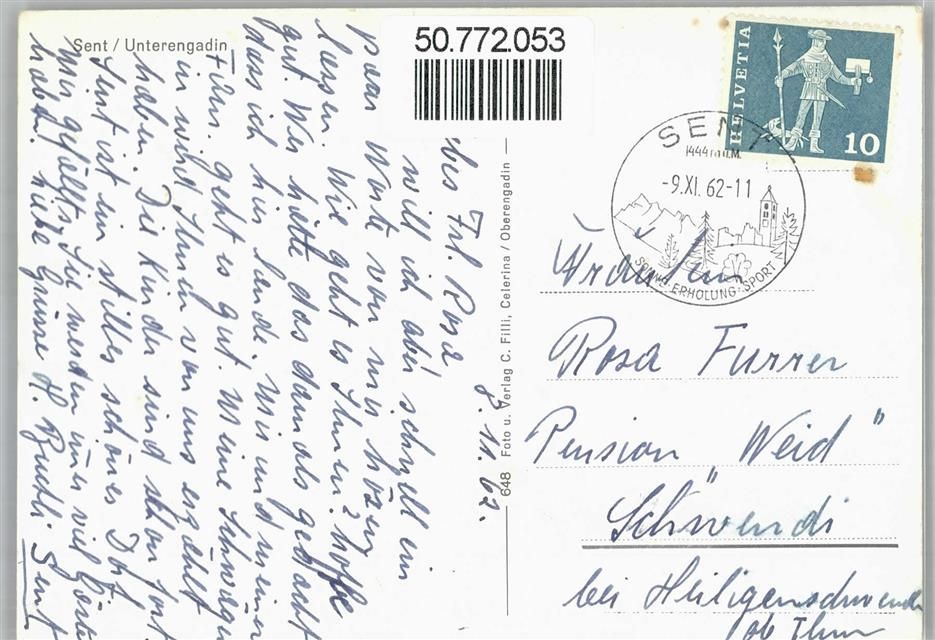 Sent / Unterengadin
50.772.053
HELVETIA
10
SENT
1444 m ü.M.
-9.XI.62-11
ERHOLUNG·SPORT
8.11.62.
bes Frl. Rosa
will ich aber schnell ein
paar Worte von mir hören
lassen. Wie geht es Ihnen? hoffe
gut. Wer hätte das damals gedacht
dass ich hier lande. Mir und meiner
Fam. geht es gut. Meine Schwäge
rin wird Ihnen von uns erzählt
haben. Die Kinder sind schon fort
Sent ist ein stilles schönes Dorf
Mir gefällts, Sie werden immer viel Gäste
haben. Liebe Grüsse H. Sent
648 Foto u. Verlag C. Filli, Celerina / Oberengadin
Fräulein
Rosa Furrer
Pension "Weid"
Schwendi
bei Heiligenschwendi
ob Thun